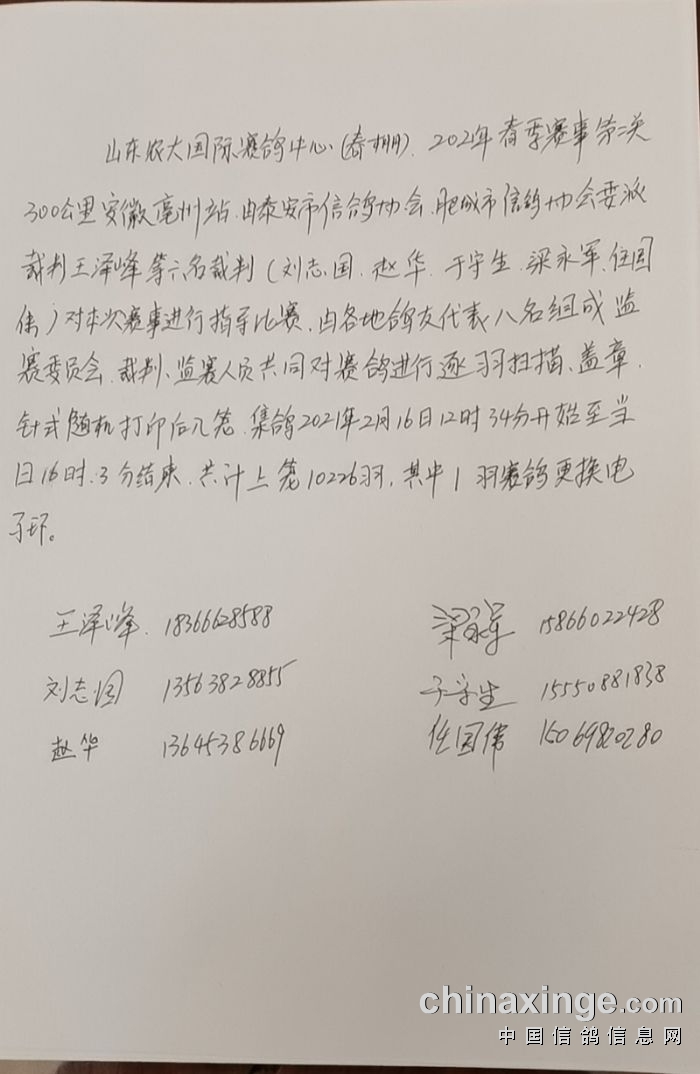 山东农大国际赛鸽中心(春棚).2021年春季赛事第二关
300公里安徽亳州站.由泰安市信鸽协会.肥城市信鸽协会委派
裁判王泽峰等六名裁判(刘志国.赵华.于守生.梁永军.任国
伟)对本次赛事进行指导比赛.由各地鸽友代表八名组成监
赛委员会.裁判、监赛人员共同对赛鸽进行逐羽扫描、盖章.
针式随机打印后入笼.集鸽2021年2月16日12时34分开始至当
日16时.3分结束.共计上笼10226羽,其中1羽赛鸽更换电
子环。
王泽峰. 18366628588 梁永军 15866022428
刘志国 13563828855 于守生 15550881838
赵华 13645386669 任国伟 15069820280
chinaxinge.com
中国信鸽信息网